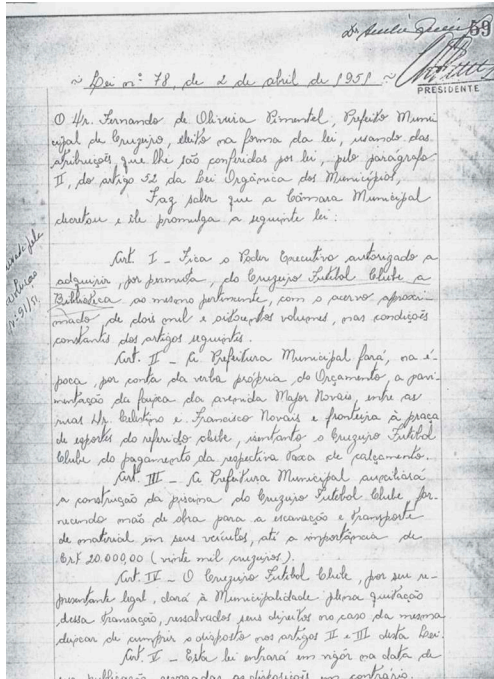 59
PRESIDENTE
~ Lei nº 78, de 2 de abril de 1951 ~
O Dr. Fernando de Oliveira Pimentel, Prefeito Muni
cipal de Cruzeiro, eleito na forma da lei, usando das
atribuições que lhe são conferidas por lei, pelo parágrafo
II, do artigo 52 da Lei Orgânica dos Municípios,
Faz saber que a Câmara Municipal
decretou e êle promulga a seguinte lei:
Art. I - Fica o Poder Executivo autorizado a
adquirir, por permuta, do Cruzeiro Futebol Clube a
Biblioteca ao mesmo pertencente, com o acervo aproxi-
mado, de dois mil e oitocentos volumes, nas condições
constantes dos artigos seguintes.
Art. II - A Prefeitura Municipal fará, na é-
poca, por conta da verba própria do Orçamento, a pavi-
mentação da faixa da avenida Major Novais, entre as
ruas Dr. Celestino e Francisco Novais e fronteira à praça
de esportes do referido clube, isentanto o Cruzeiro Futebol
Clube do pagamento da respectiva Taxa de calçamento.
Art. III - A Prefeitura Municipal auxiliará
a construção da piscina do Cruzeiro Futebol Clube, for-
necendo mão de obra para a escavação e transporte
de material em seus veículos, até a importância de
Cr$ 20.000,00 (vinte mil cruzeiros).
Art. IV - O Cruzeiro Futebol Clube, por seu re-
presentante legal, dará à Municipalidade plena quitação
dessa transação, ressalvados seus direitos no caso da mesma
deixar de cumprir o disposto nos artigos II e III desta Lei.
Art. V - Esta lei entrará em vigôr na data de
sua publicação, revogadas as disposições em contrário.